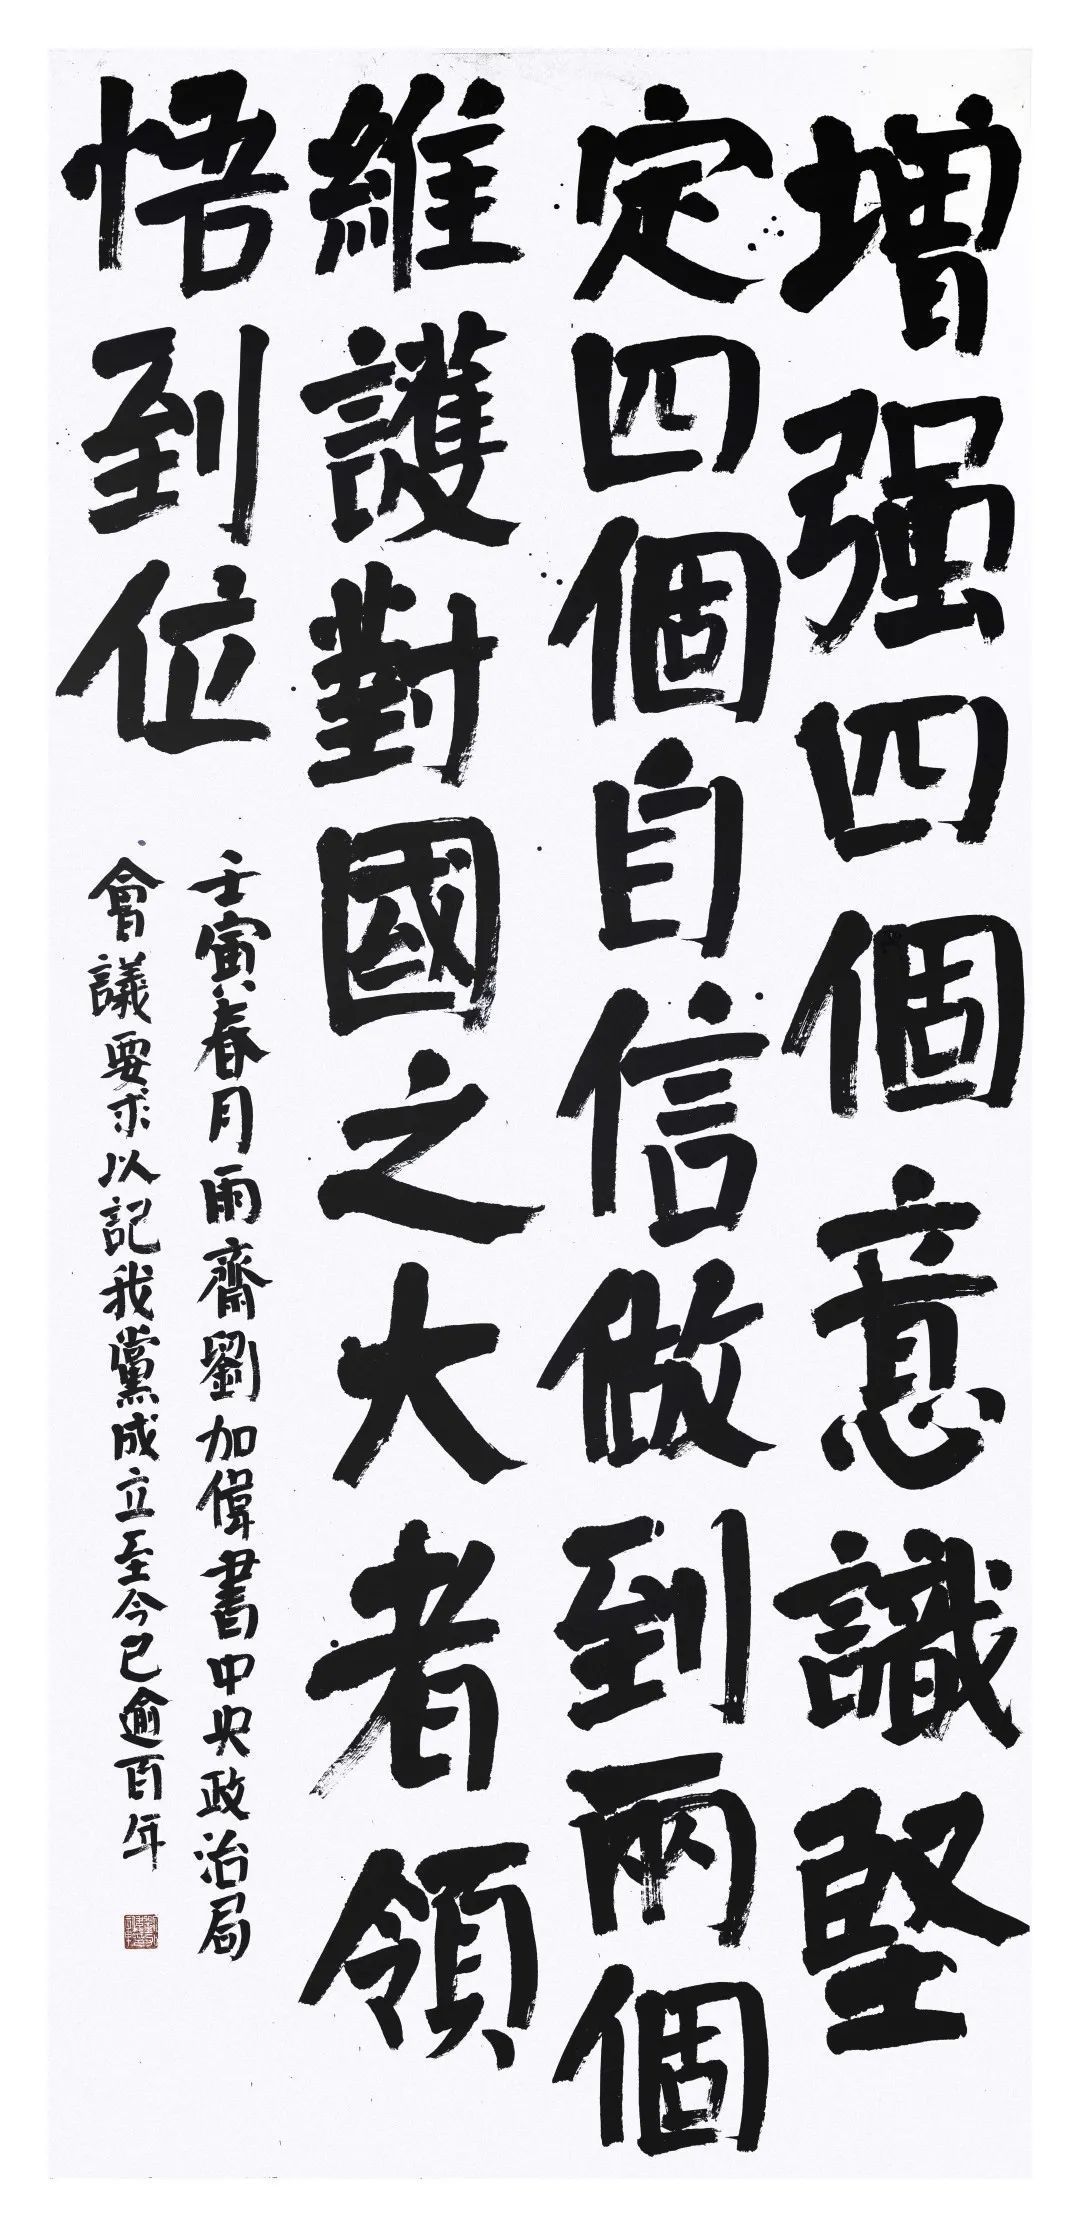 增强四個意識堅
定四個自信做到兩個
維護對國之大者領
悟到位
壬寅春月雨齋劉加偉書中央政治局
會議要求以記我黨成立至今已逾百年